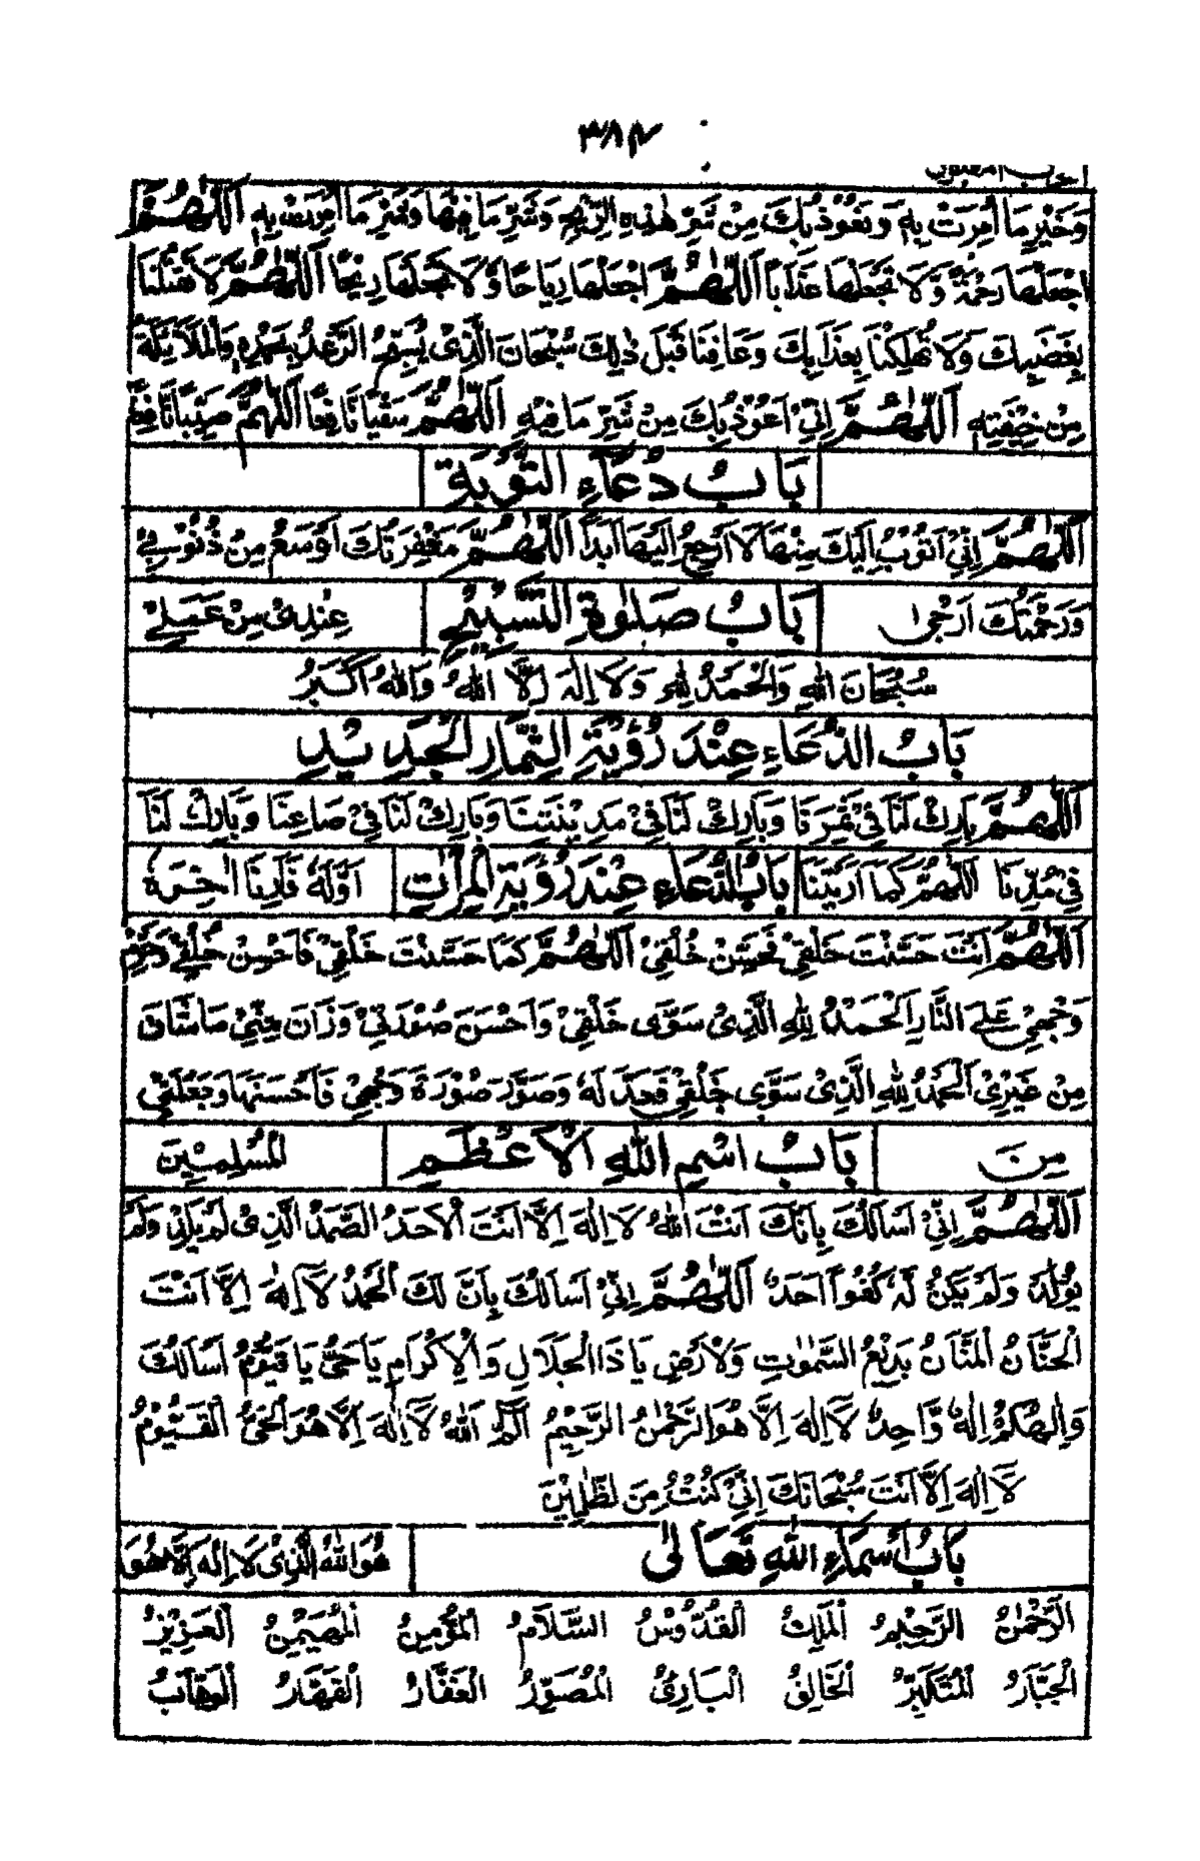 ٣٨٣
وَخَيْرِ مَا أُمِرَتْ بِهِ وَنَعُوْذُ بِكَ مِنْ شَرِّ هٰذِهِ الرِّيْحِ وَشَرِّ مَا فِيْهَا وَشَرِّ مَا أُمِرَتْ بِهِ اَللّٰهُمَّ
اجْعَلْهَا رَحْمَةً وَّلَا تَجْعَلْهَا عَذَابًا اَللّٰهُمَّ اجْعَلْهَا رِيَاحًا وَّلَا تَجْعَلْهَا رِيْحًا اَللّٰهُمَّ لَا تَقْتُلْنَا
بِغَضَبِكَ وَلَا تُهْلِكْنَا بِعَذَابِكَ وَعَافِنَا قَبْلَ ذٰلِكَ سُبْحَانَ الَّذِىْ يُسَبِّحُ الرَّعْدُ بِحَمْدِهٖ وَالْمَلَائِكَةُ
مِنْ خِيْفَتِهٖ اَللّٰهُمَّ اِنِّىْ اَعُوْذُ بِكَ مِنْ شَرِّ مَا فِيْهِ اَللّٰهُمَّ سَقْيًا نَافِعًا اَللّٰهُمَّ صَيِّبًا نَّافِعًا
بَابُ دُعَاءِ التَّوْبَةِ
اَللّٰهُمَّ اِنِّىْ اَتُوْبُ اِلَيْكَ مِنْهَا لَا اَرْجِعُ اِلَيْهَا اَبَدًا اَللّٰهُمَّ مَغْفِرَتُكَ اَوْسَعُ مِنْ ذُنُوْبِىْ
وَرَحْمَتُكَ اَرْجٰى بَابُ صَلٰوةِ التَّسْبِيْحِ عِنْدِىْ مِنْ عَمَلِىْ
سُبْحَانَ اللّٰهِ وَالْحَمْدُ لِلّٰهِ وَلَا اِلٰهَ اِلَّا اللّٰهُ وَاللّٰهُ اَكْبَرُ
بَابُ الدُّعَاءِ عِنْدَ رُؤْيَةِ الثِّمَارِ الْجَدِيْدِ
اَللّٰهُمَّ بَارِكْ لَنَا فِىْ ثَمَرِنَا وَبَارِكْ لَنَا فِىْ مَدِيْنَتِنَا وَبَارِكْ لَنَا فِىْ صَاعِنَا وَبَارِكْ لَنَا
فِىْ مُدِّنَا اَللّٰهُمَّ كَمَا اَرَيْتَنَا بَابُ الدُّعَاءِ عِنْدَ رُؤْيَةِ الْمِرْاٰتِ اَوَّلَهٗ فَاَرِنَا اٰخِرَهٗ
اَللّٰهُمَّ اَنْتَ حَسَّنْتَ خَلْقِىْ فَحَسِّنْ خُلُقِىْ اَللّٰهُمَّ كَمَا حَسَّنْتَ خَلْقِىْ فَاَحْسِنْ خُلُقِىْ وَحَرِّمْ
وَجْهِىْ عَلَى النَّارِ اَلْحَمْدُ لِلّٰهِ الَّذِىْ سَوّٰى خَلْقِىْ وَاَحْسَنَ صُوْرَتِىْ وَزَانَ مِنِّىْ مَا شَانَ
مِنْ غَيْرِىْ اَلْحَمْدُ لِلّٰهِ الَّذِىْ سَوّٰى خَلْقِىْ فَعَدَّلَهٗ وَصَوَّرَ صُوْرَةَ وَجْهِىْ فَاَحْسَنَهَا وَجَعَلَنِىْ
مِنَ بَابُ اسْمِ اللّٰهِ الْاَعْظَمِ الْمُسْلِمِيْنَ
اَللّٰهُمَّ اِنِّىْ اَسْاَلُكَ بِاَنَّكَ اَنْتَ اللّٰهُ لَا اِلٰهَ اِلَّا اَنْتَ الْاَحَدُ الصَّمَدُ الَّذِىْ لَمْ يَلِدْ وَلَمْ
يُوْلَدْ وَلَمْ يَكُنْ لَّهٗ كُفُوًا اَحَدٌ اَللّٰهُمَّ اِنِّىْ اَسْاَلُكَ بِاَنَّ لَكَ الْحَمْدُ لَا اِلٰهَ اِلَّا اَنْتَ
الْحَنَّانُ الْمَنَّانُ بَدِيْعُ السَّمٰوٰتِ وَلْاَرْضِ يَا ذَا الْجَلَالِ وَالْاِكْرَامِ يَا حَىُّ يَا قَيُّوْمُ اَسْاَلُكَ
وَاِلٰهُكُمْ اِلٰهٌ وَّاحِدٌ لَا اِلٰهَ اِلَّا هُوَ الرَّحْمٰنُ الرَّحِيْمُ الٓمّٓ اَللّٰهُ لَا اِلٰهَ اِلَّا هُوَ الْحَىُّ الْقَيُّوْمُ
لَا اِلٰهَ اِلَّا اَنْتَ سُبْحَانَكَ اِنِّىْ كُنْتُ مِنَ الظّٰلِمِيْنَ
بَابُ اَسْمَاءِ اللّٰهِ تَعَالٰى هُوَ اللّٰهُ الَّذِىْ لَا اِلٰهَ اِلَّا هُوَ
الرَّحْمٰنُ الرَّحِيْمُ الْمَلِكُ الْقُدُّوْسُ السَّلَامُ الْمُؤْمِنُ الْمُهَيْمِنُ الْعَزِيْزُ
الْجَبَّارُ الْمُتَكَبِّرُ الْخَالِقُ الْبَارِئُ الْمُصَوِّرُ الْغَفَّارُ الْقَهَّارُ الْوَهَّابُ